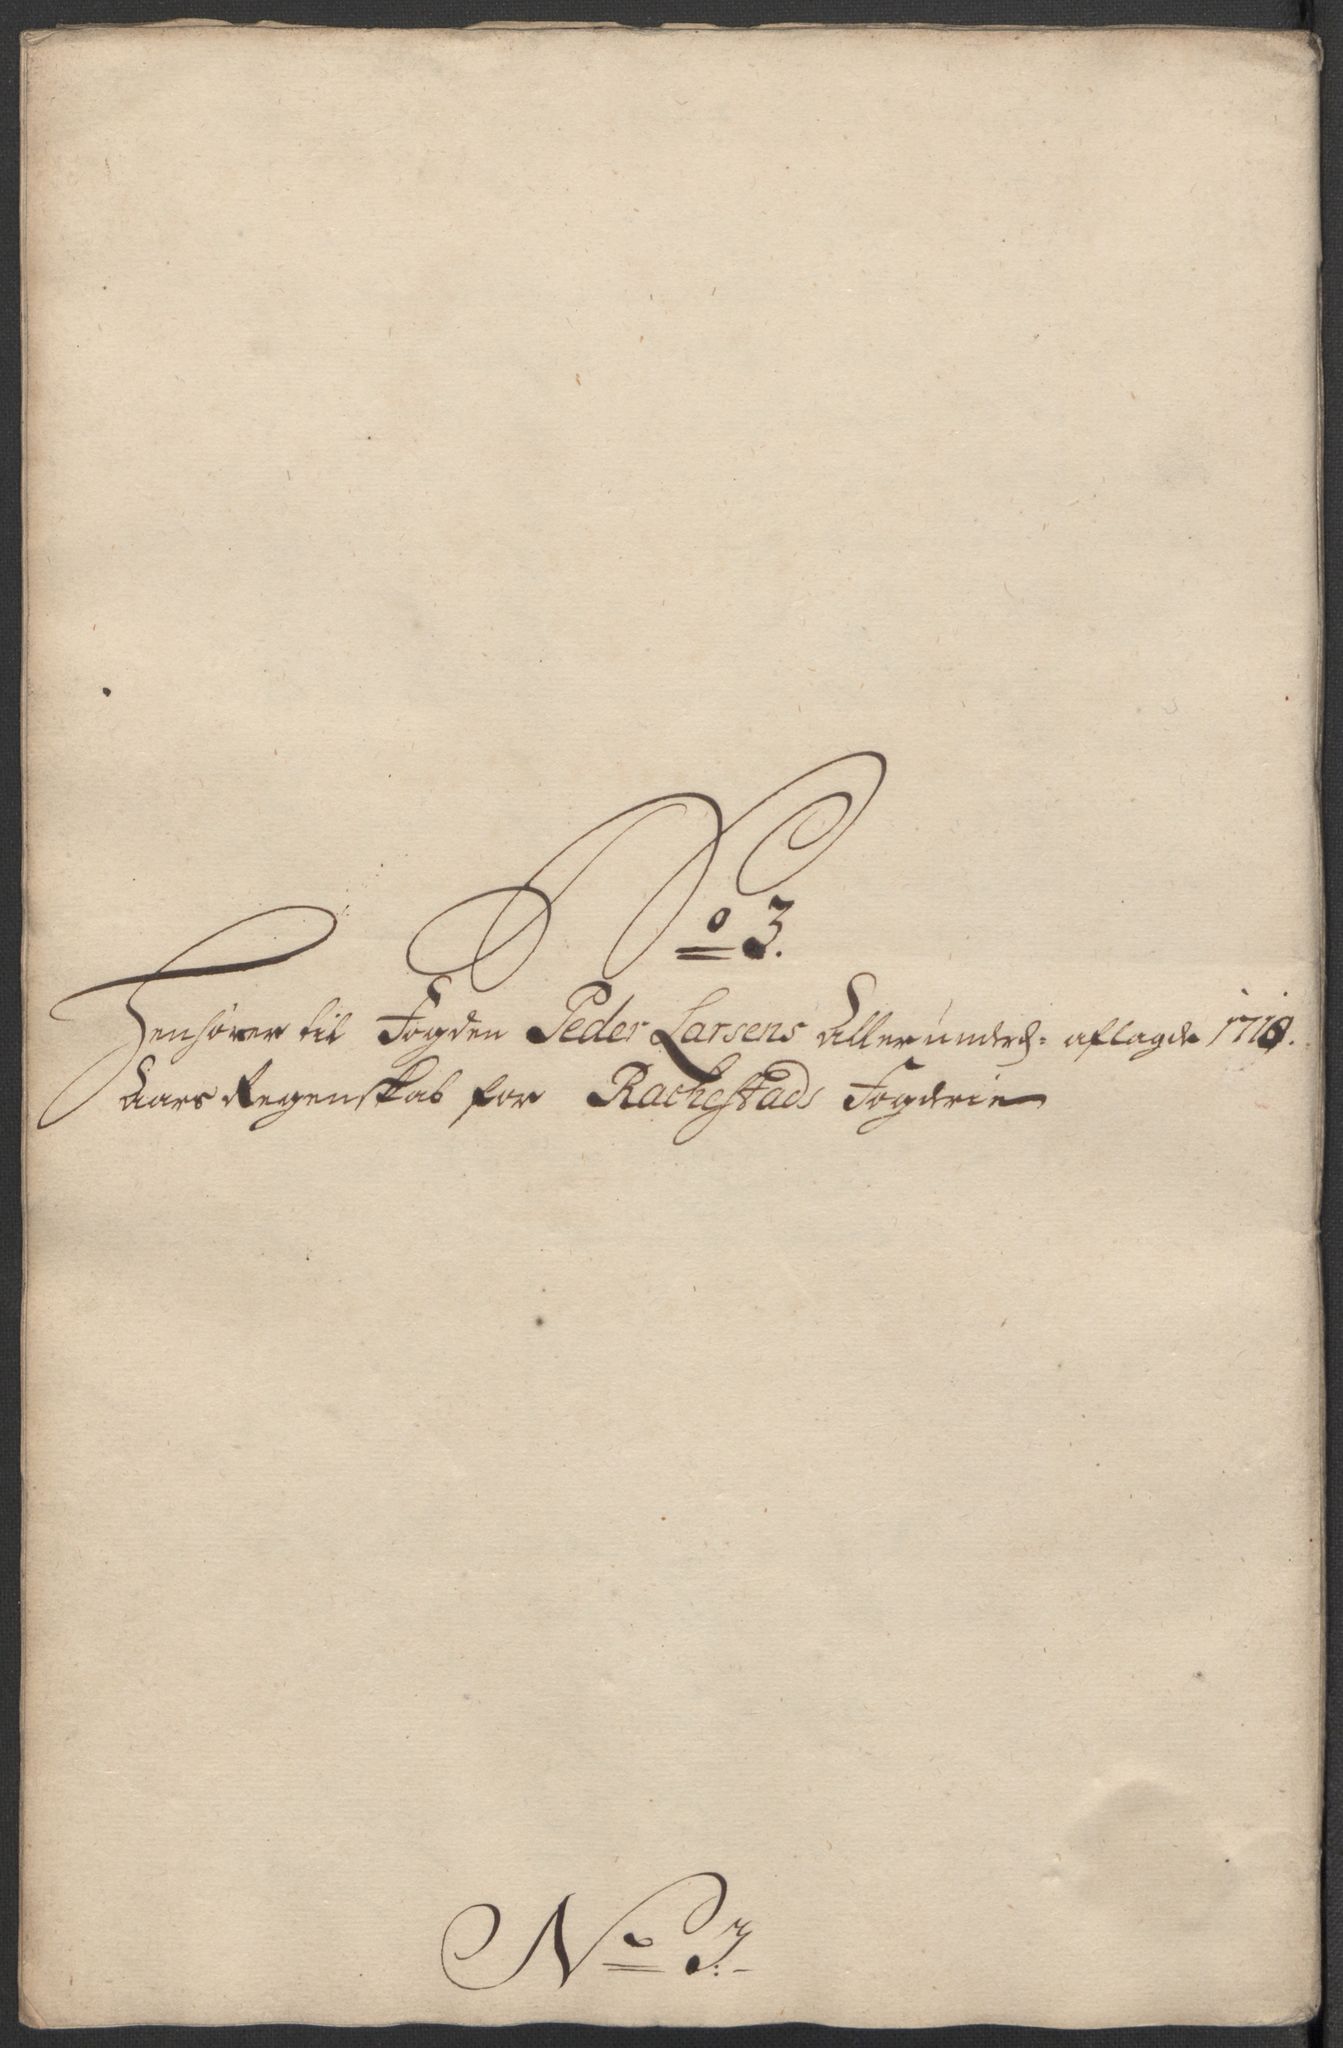 No 3.
Henhører til Fogden Peder Larsens Allerunderd: aflagde 1718.
Aars Regenskab for Rachestads Fogderie
No 3.